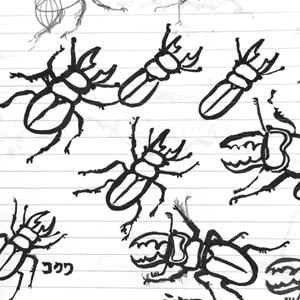 コクワ